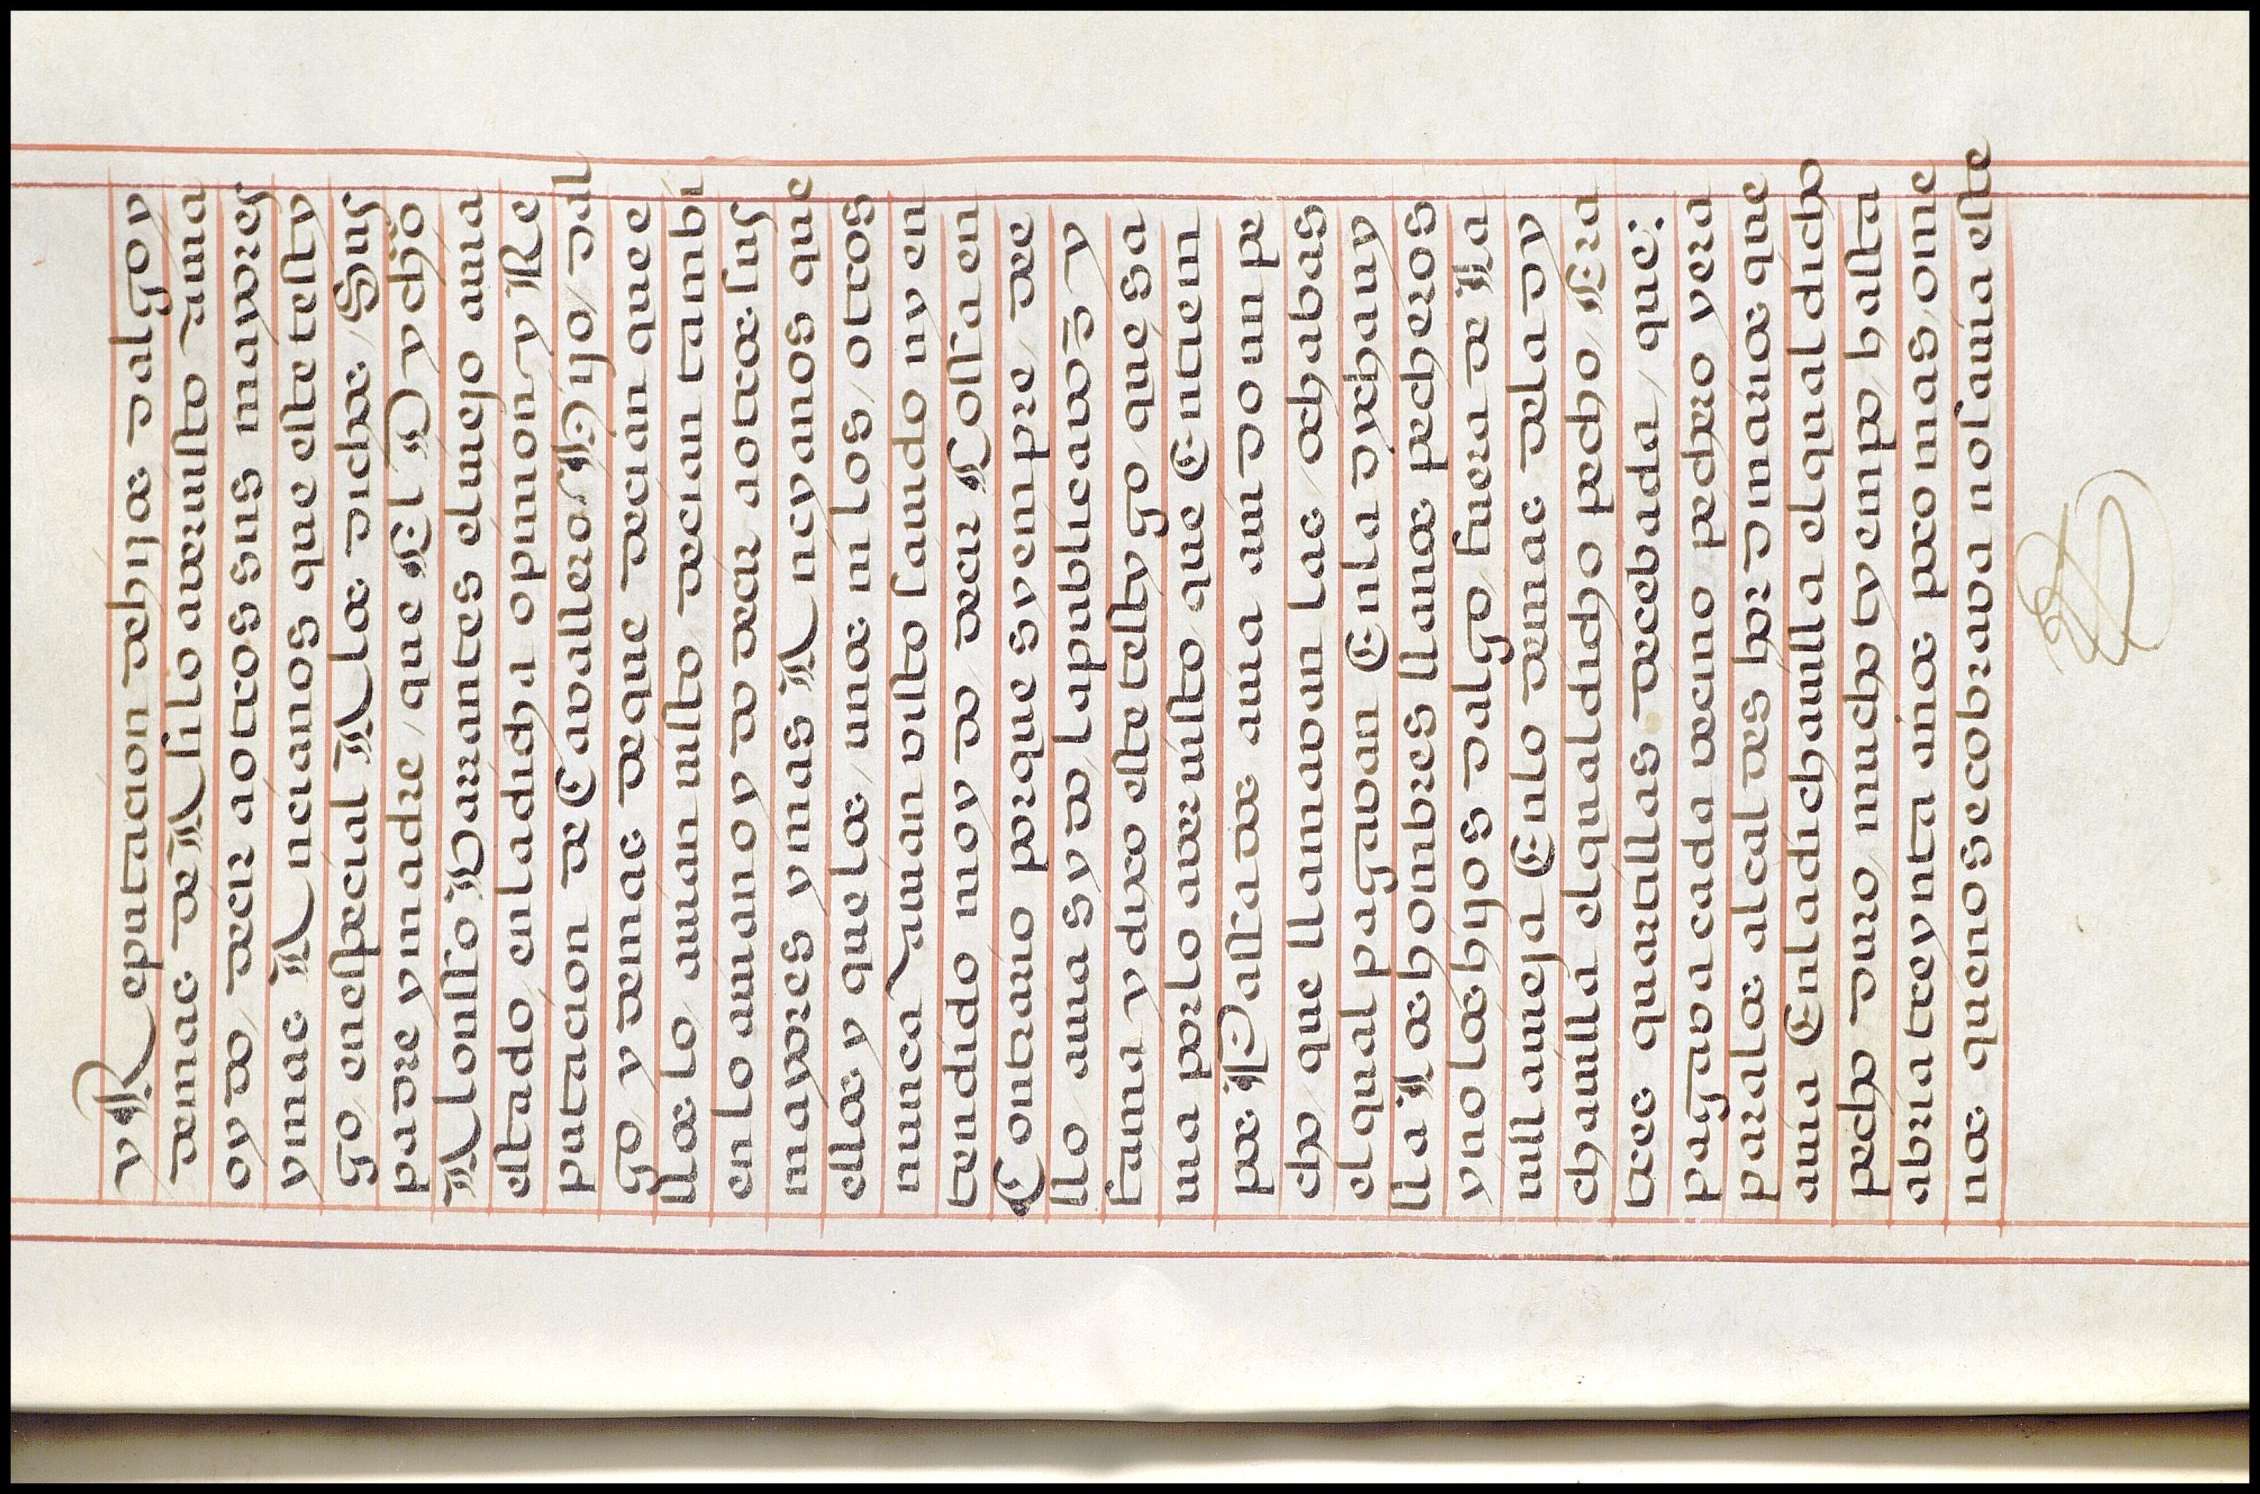 y Reputacion de hijos dalgo y
demas de Asi lo aver uisto auia
oydo / decir a otros sus mayores
y mas Ancianos que este testy
go / en especial A los dichos / Sus
padre y madre / que El Dycho
Alonsso Barantes el uiejo auia
estado / en la dicha opinion y Re
putacion de Cavallero / Hijo / dal
go / y demas de que decian que e
llos lo / auian uisto decian tambi
en lo auian oydo decir a otros sus
mayores y mas Ancyanos que
ellos y que los / unos ni los / otros
nunca auian visto sauido ny en
tendido ni oydo / decir Cossa en
Contrario porque syempre / de e
llo / auia sydo / la publica voz y
fama y dixo este testygo / que sa
uia por lo aver uisto que Entiem
pos Passados auia auido un pe
cho / que llamavan las / ochabas
el qual pagavan En la dycha uy
lla Los hombres llanos pecheros
y no los hijos dalgo / fuera de La
uilla uieja En lo demas de la dy
cha uilla el qual dicho pecho / Era
tres quartillas de cebada / que:
pagava cada vecino pechero y era
para los alcaldes hordinarios que
auia En la dicha uilla el qual dicho
pecho duro / mucho tyempo / hasta
abria treynta años poco mas / o me
nos que no se cobrava no sauia este